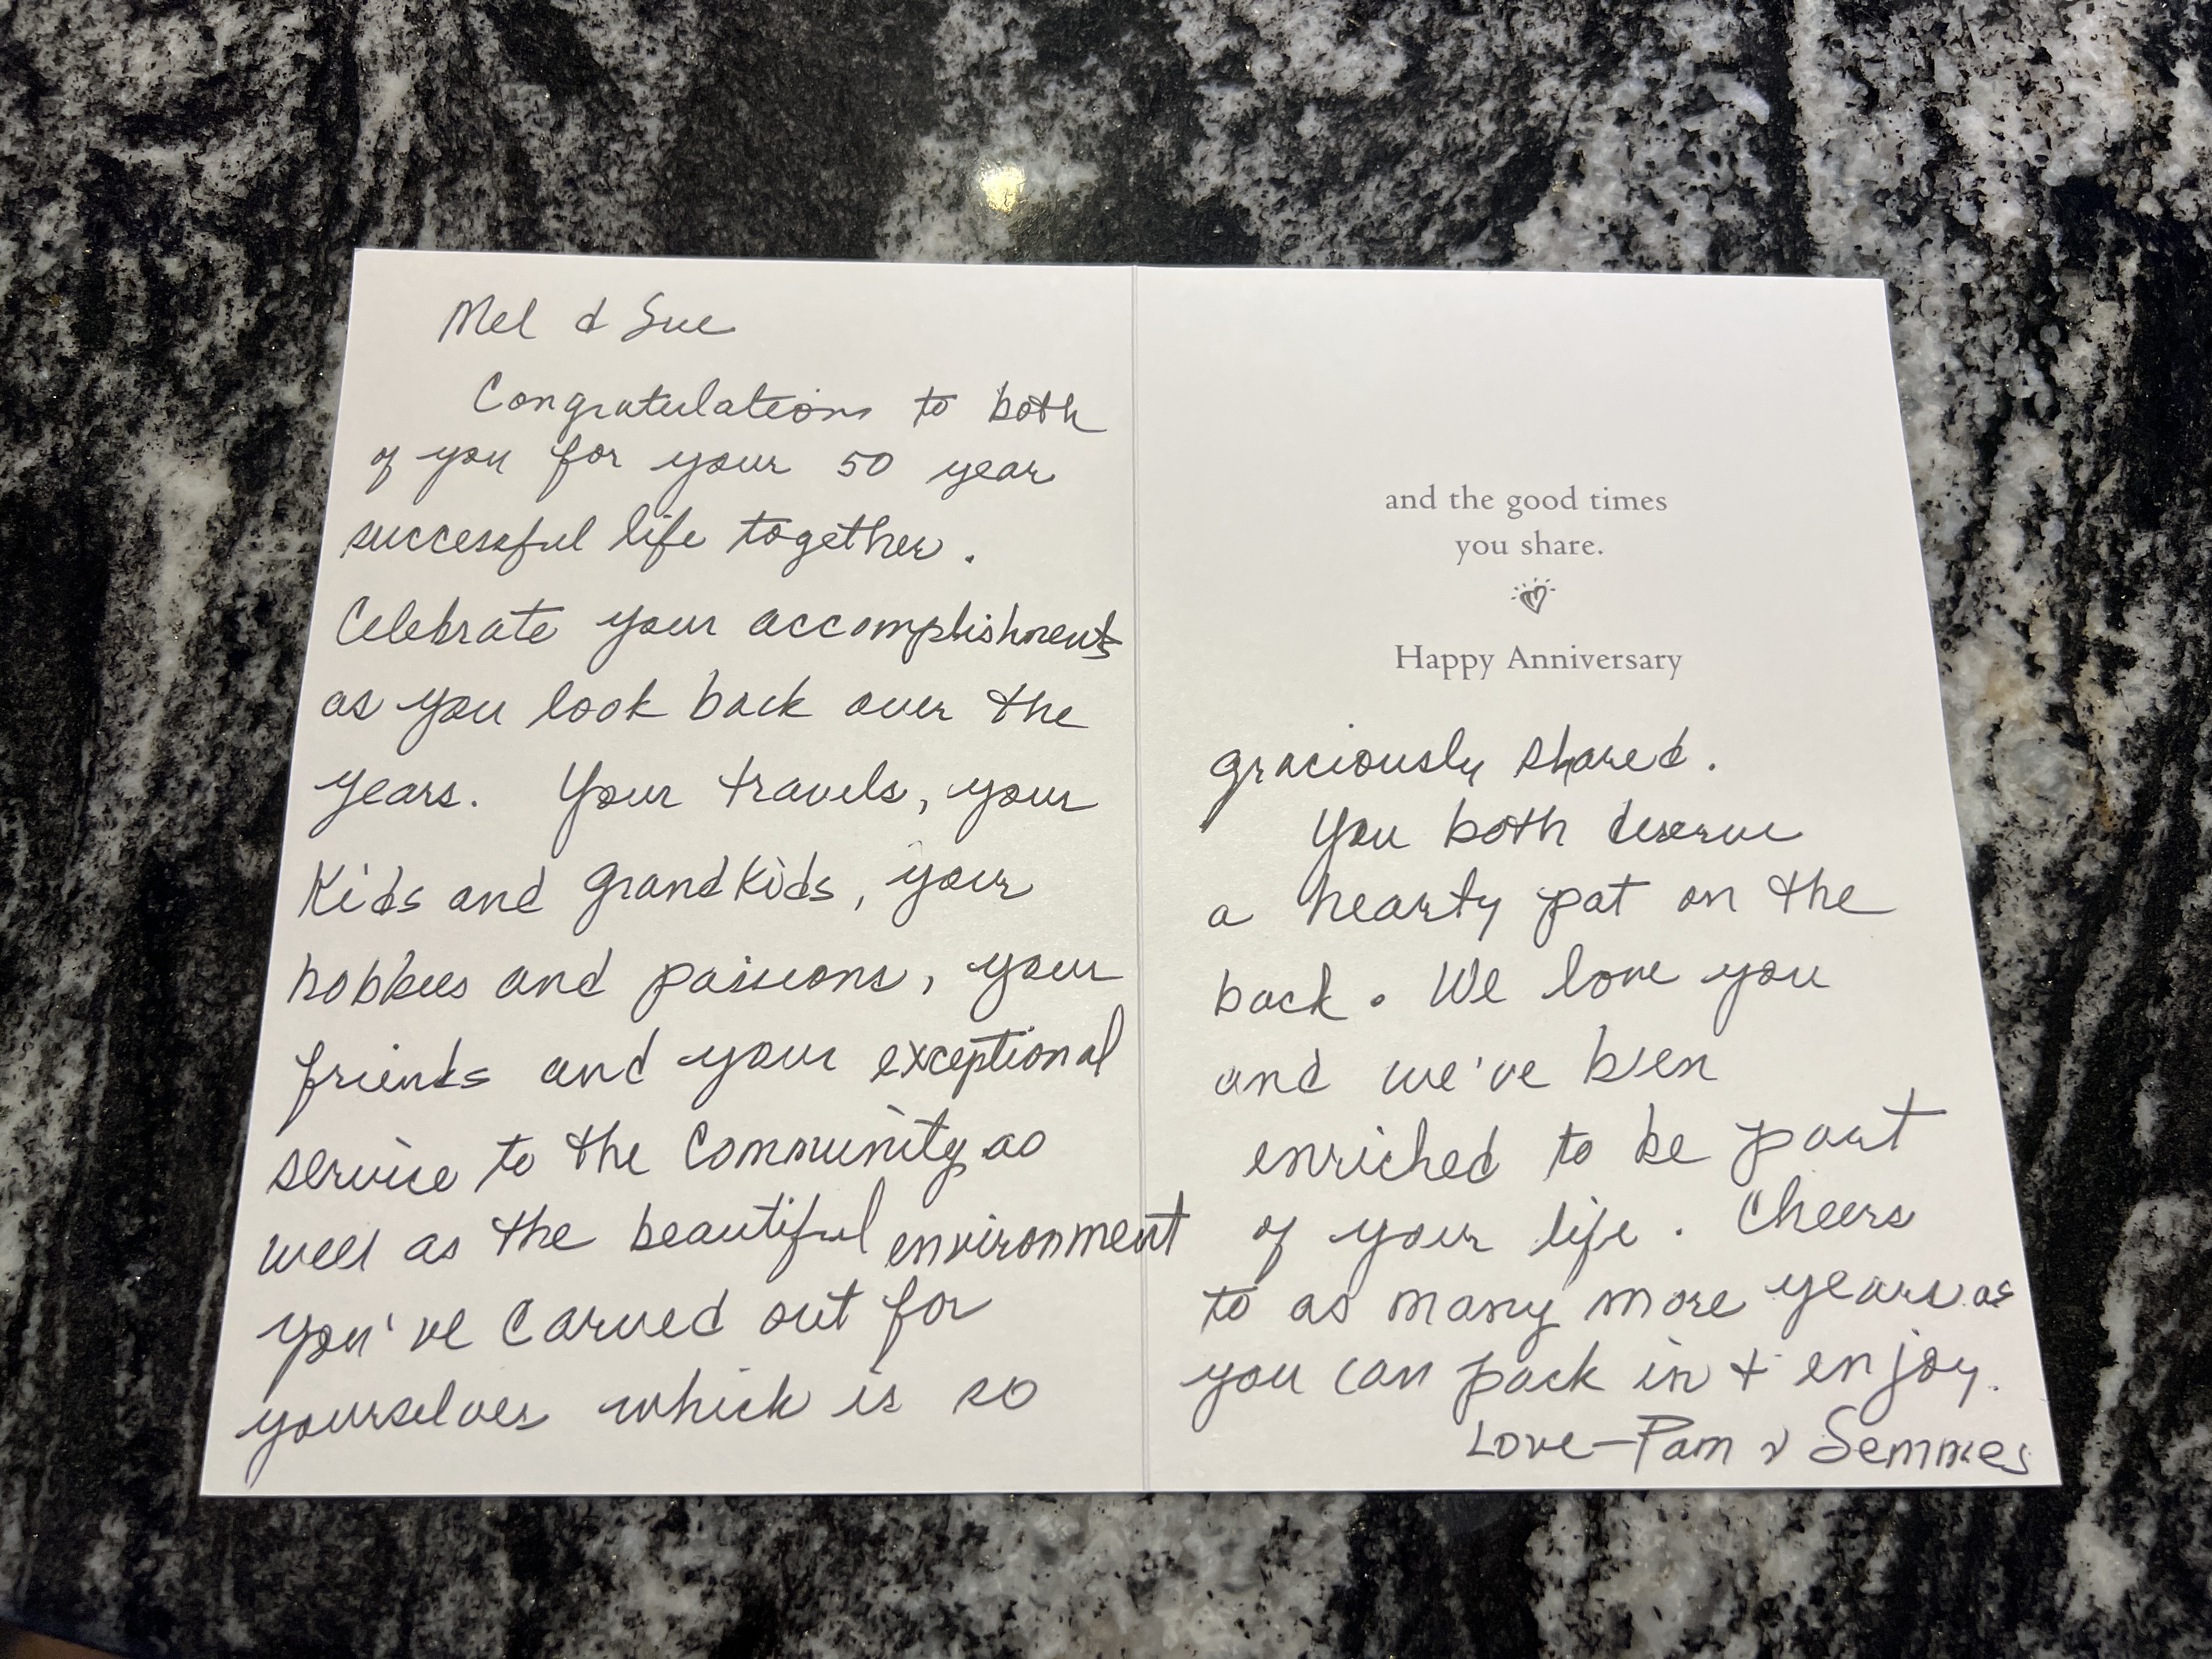 Mel & Sue
Congratulations to both
of you for your 50 year
successful life together.
Celebrate your accomplishments
as you look back over the
years. Your travels, your
kids and grandkids, your
hobbies and passions, your
friends and your exceptional
service to the community as
well as the beautiful environment
you've carved out for
yourselves which is so
and the good times
you share.
Happy Anniversary
graciously shared.
You both deserve
a hearty pat on the
back. We love you
and we've been
enriched to be part
of your life. Cheers
to as many more years as
you can pack in + enjoy.
Love-Pam & Semmes